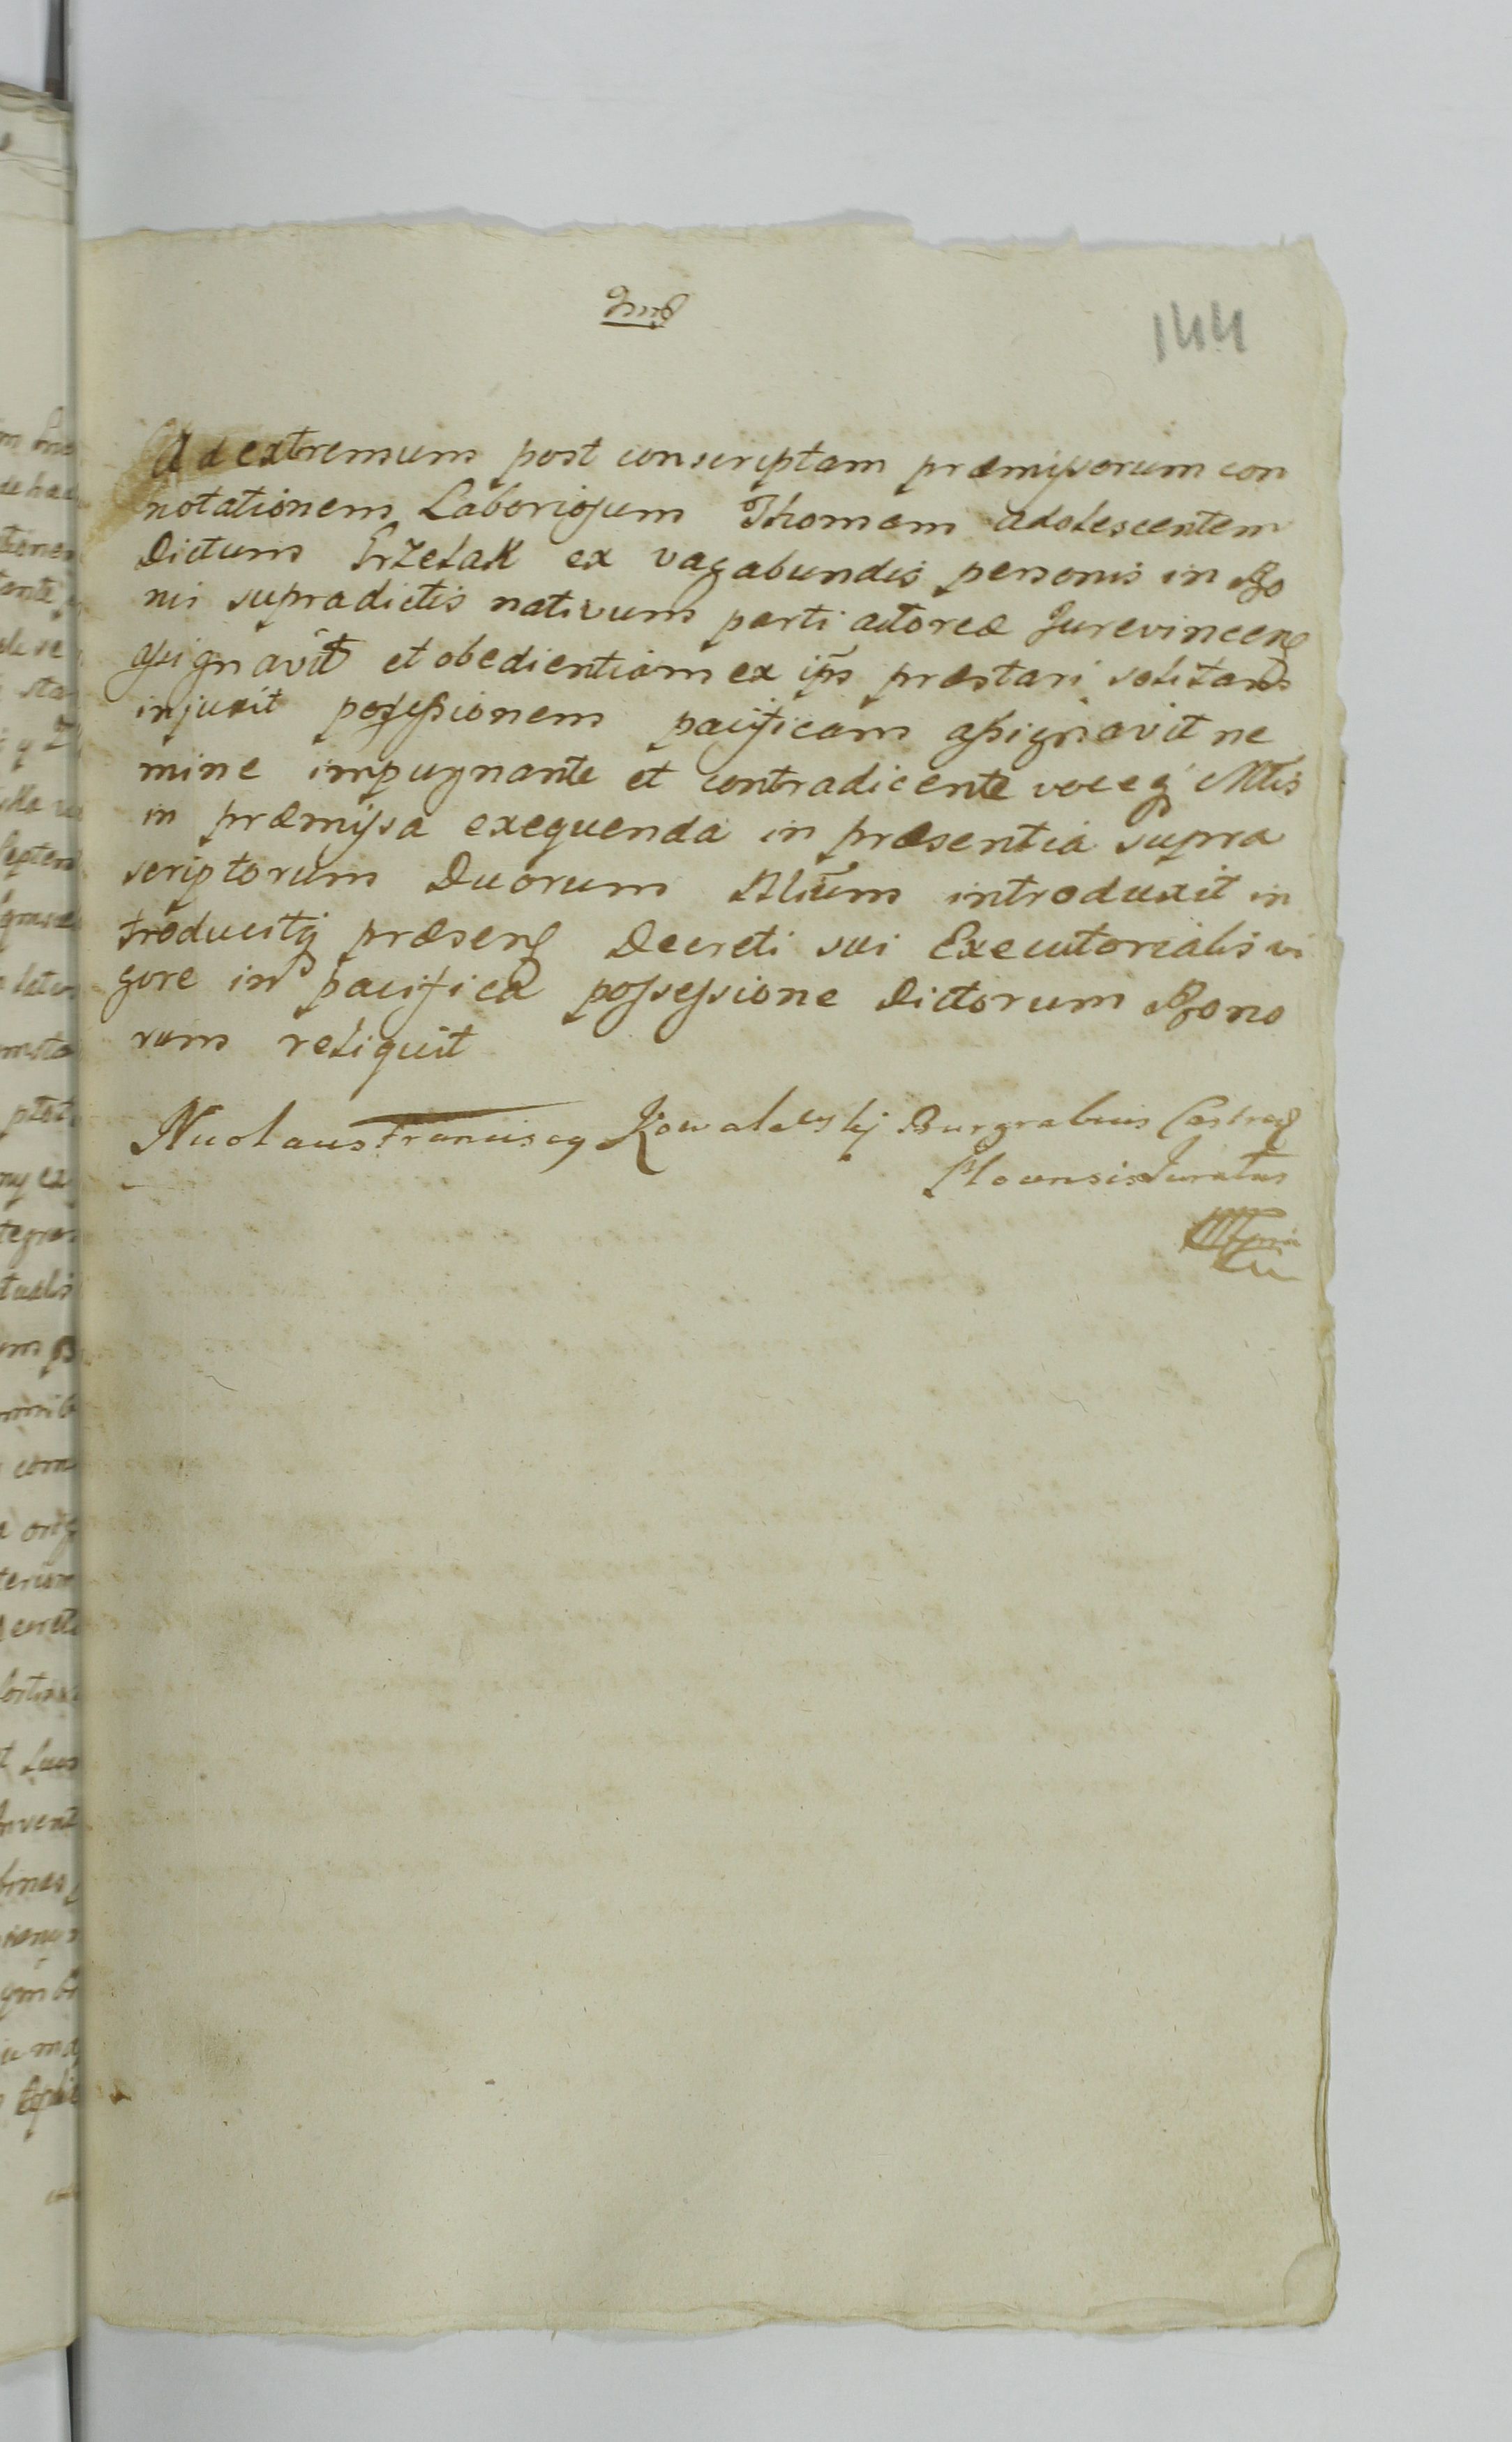 144
Ad extremum post conscriptam præmissorum con
notationem Laboriosum Thomam adolescentem
Dictum ex vagabundis personis in Bo
nis supradictis nativum parti actoreæ Jurevincen
assignavit et obedientiam ex ips præstari solitam
injuxit possessionem pacificam assignavit ne
mine impugnante et contradicente voceq Mtis
in præmissa exequenda in præsentia supra
scriptorum Duorum introduxit in
troducitq præsen Decreti sui Executorialis vi
gore in pacifica possessione Dictorum Bono
rum reliquit
Nicolaus Franciscq Kowalewskj Burgrabius Castren
Plocensis Juratus